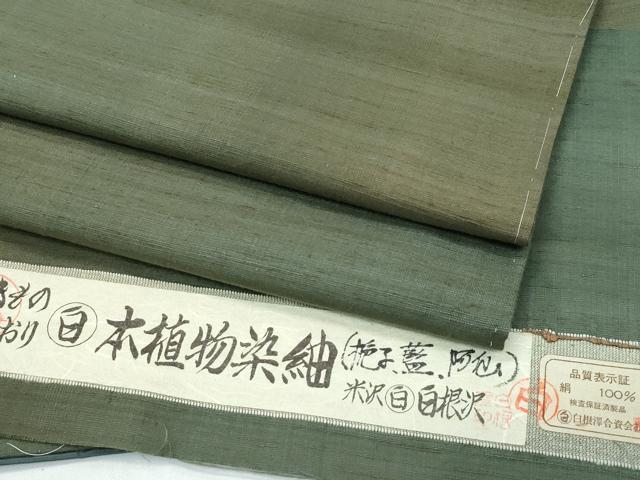 きもの
おり
白 本植物染紬 (梔子、藍、阿仙)
米沢 白 白根沢
品質表示証
絹 100%
検査保証済製品
白 白根澤合資会